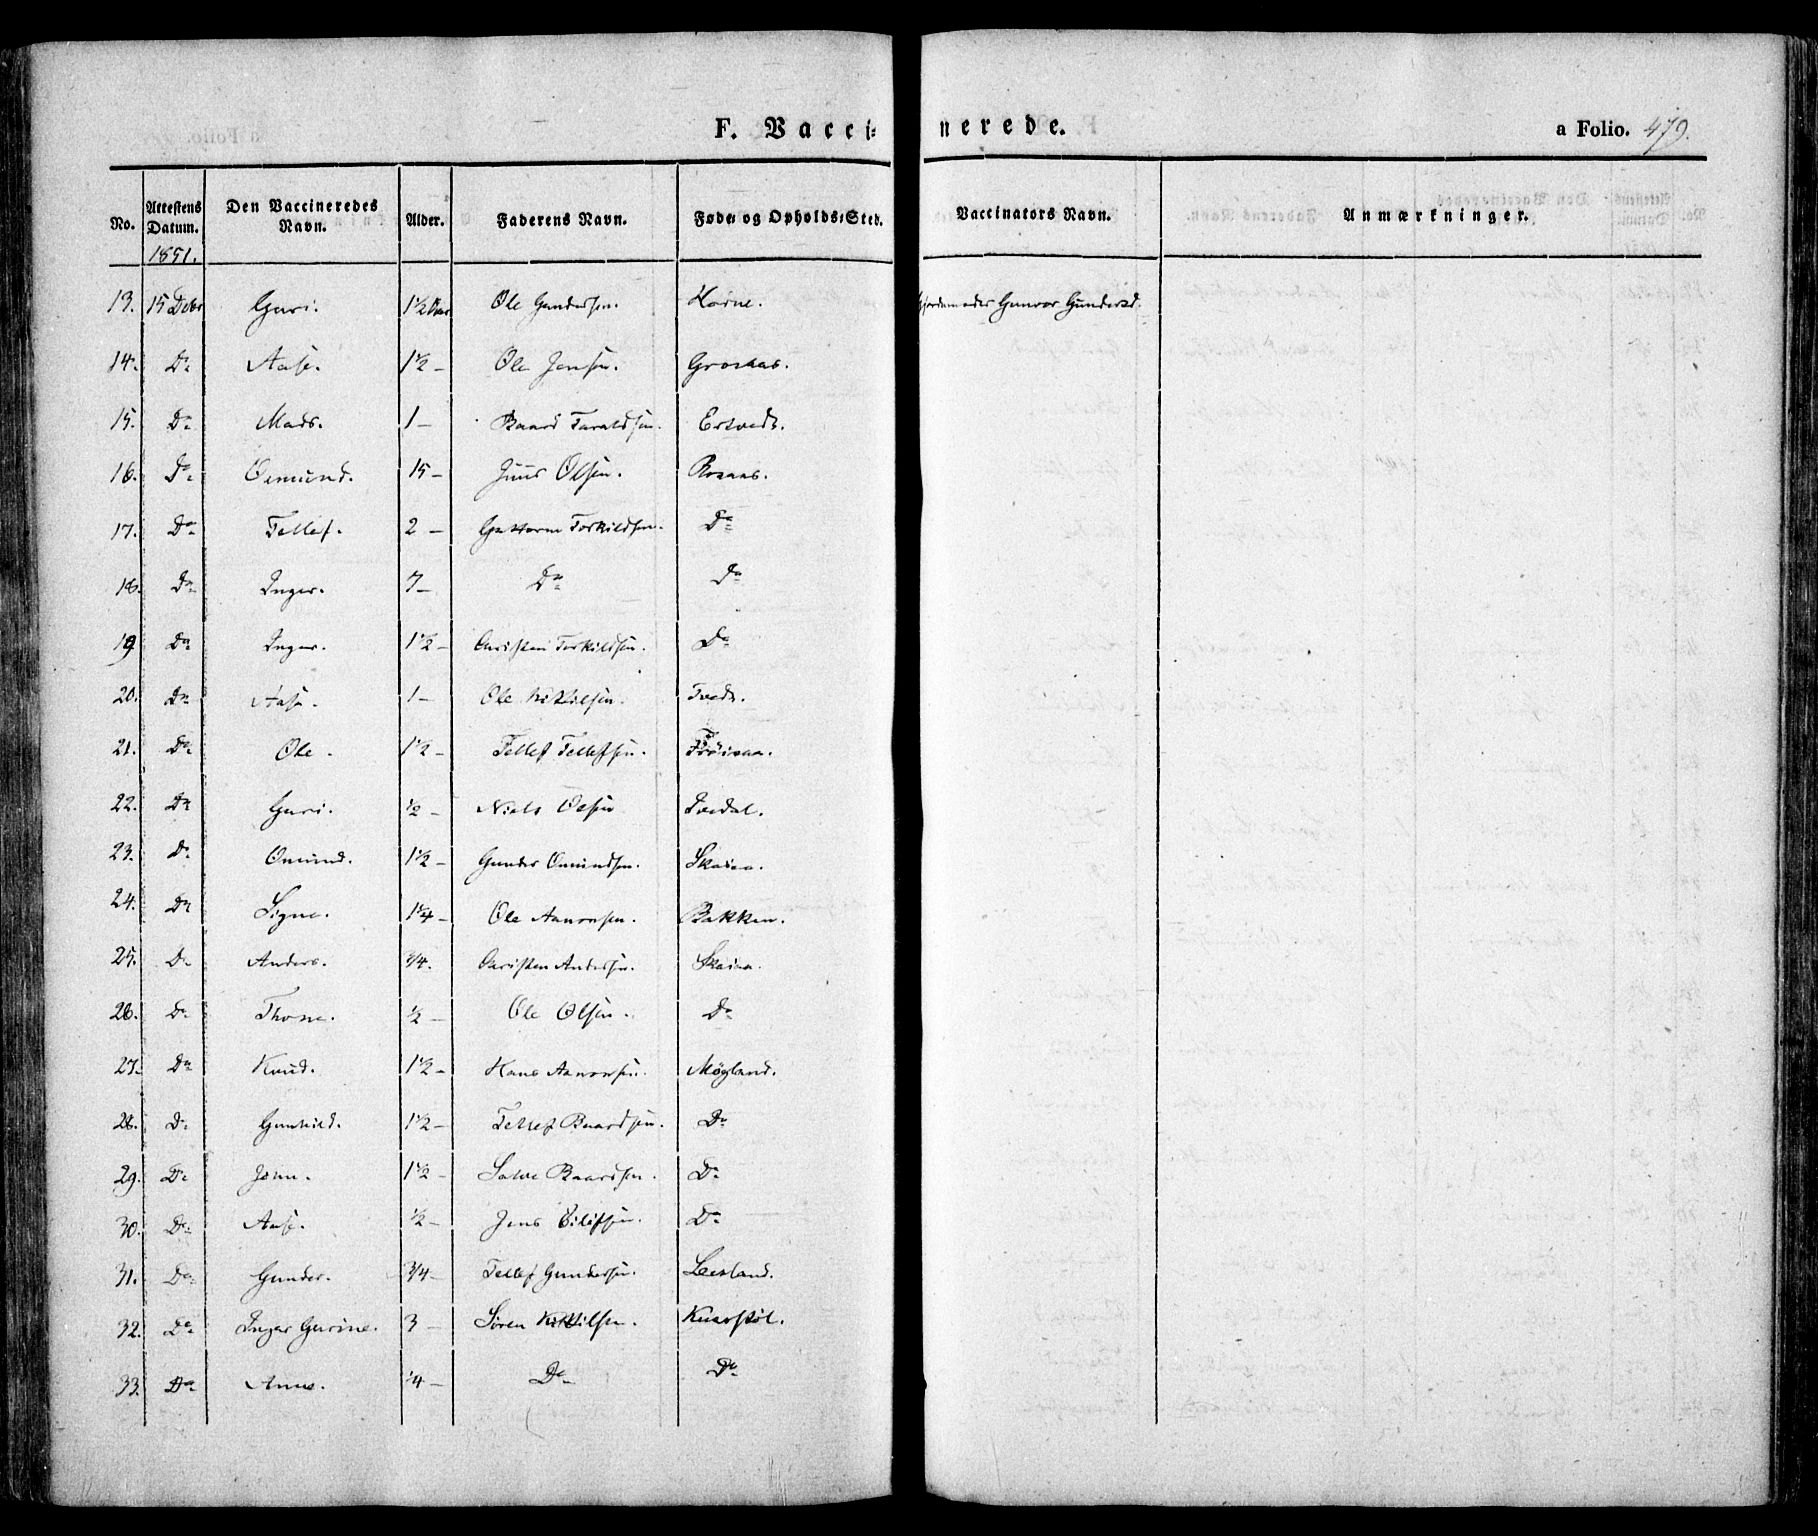 F. Vacci- nerede. a Folio. 479.
No. Attestens Datum. Den Vaccineredes Navn. Alder. Faderens Navn. Føde- og Opholds-Sted. Vaccinators Navn. Anmærkninger.
1851.
13. 15 Debr Guri. 1½ Aar Ole Gundersen. Horne. Jordemoder Gunvor Gundersd.
14. Do Aase. 1½ – Ole Jensen. Grosaas.
15. Do Mads. 1 – Baard Taraldsen. Ertvedt.
16. Do Osmund. 15 – Juus Olsen. Rosaas.
17. Do Tellef. 2 – Guttorm Torkildsen. Do
18. Do Inger. 7 – Do Do
19 Do Inger. 1½ – Christen Torkildsen. Do
20. Do Aase. 1 – Ole Kittilsen. Tvedt.
21. Do Ole. 1½ – Tellef Tellefsen. Frøisaa.
22. Do Guri. ½ – Niels Olsen Ivedal.
23. Do Omund. 1½ – Gunder Omundsen. Skaiaa.
24. Do Signe. 1¾ – Ole Aanonsen. Bakken.
25. Do Anders. ¾. Christen Andersen. Skaiaa.
26. Do Thone. ½ – Ole Olsen. Do
27. Do Knud. 1½ – Hans Aanonsen. Møgland.
28. Do Gunhild. 1½ – Tellef Baardsen. Do
29. Do Jørun. 1½ – Salve Baardsen. Do
30. Do Aase. ½ – Jens Eilefsen. Do
31. Do Gunder. ¾ – Tellef Gundersen. Lersland.
32. Do Inger Gurine. 3 – Søren Kittilsen. Knarstøl.
33. Do Anne. ¼ – Do Do